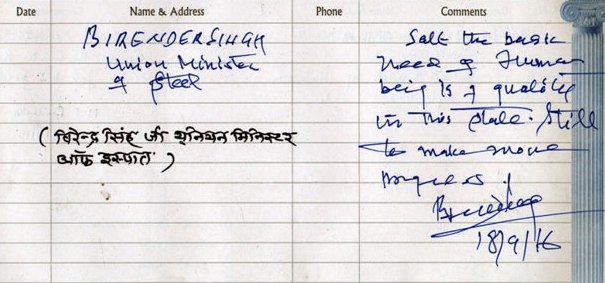 Date Name & Address Phone Comments
BIRENDER SINGH
Union Minister
of Steel
(बिरेन्द्र सिंह जी यूनियन मिनिस्टर
ऑफ इस्पात)
Salt the basic
need of Human
being is of quality
in this state. Still
to make more
progress.
18/9/16